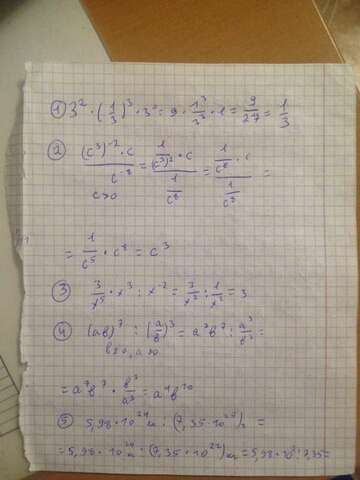 1) 3² · (1/3)³ · 3⁰ = 9 · 1³/3³ · 1 = 9/27 = 1/3
2) (c³)⁻² · c / c⁻⁸ = 1/(c³)² · c / 1/c⁸ = 1/c⁶ · c / 1/c⁸ =
c>0
= 1/c⁵ · c⁸ = c³
3) 3/x⁵ · x³ : x⁻² = 3/x² : 1/x² = 3
4) (ab)⁷ : (a/b)³ = a⁷b⁷ : a³/b³ =
= a⁷b⁷ · b³/a³ = a⁴b¹⁰
5) 5,98 · 10²⁴ : (7,35 · 10²⁵) =
= 5,98 · 10²⁴ : (7,35 · 10²²) = 5,98 · 10² : 7,35 =